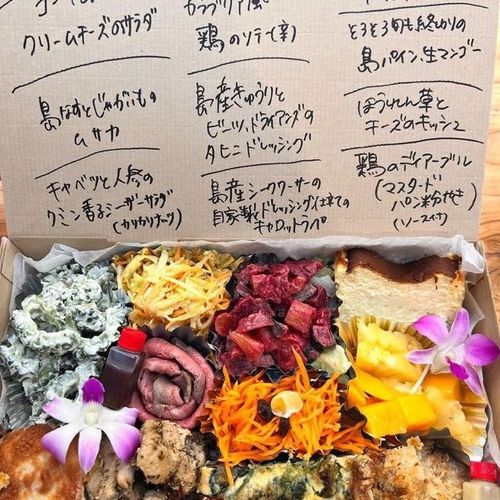 クリームチーズのサラダ
カラブリア風
鶏のソテー(辛)
とろとろ旬も終わりの
島パイン、生マンゴー
島なすとじゃがいもの
ムサカ
島産きゅうりと
ビーツ、ドライアンダの
タヒニドレッシング
ほうれん草と
チーズのキッシュ
キャベツと人参の
クミン香るシーザーサラダ
(カリカリナッツ)
島産シークワーサーの
自家製ドレッシング仕立ての
キャロットラペ
鶏のディアーブル
(マスタード
パン粉やき)
(ソース付)